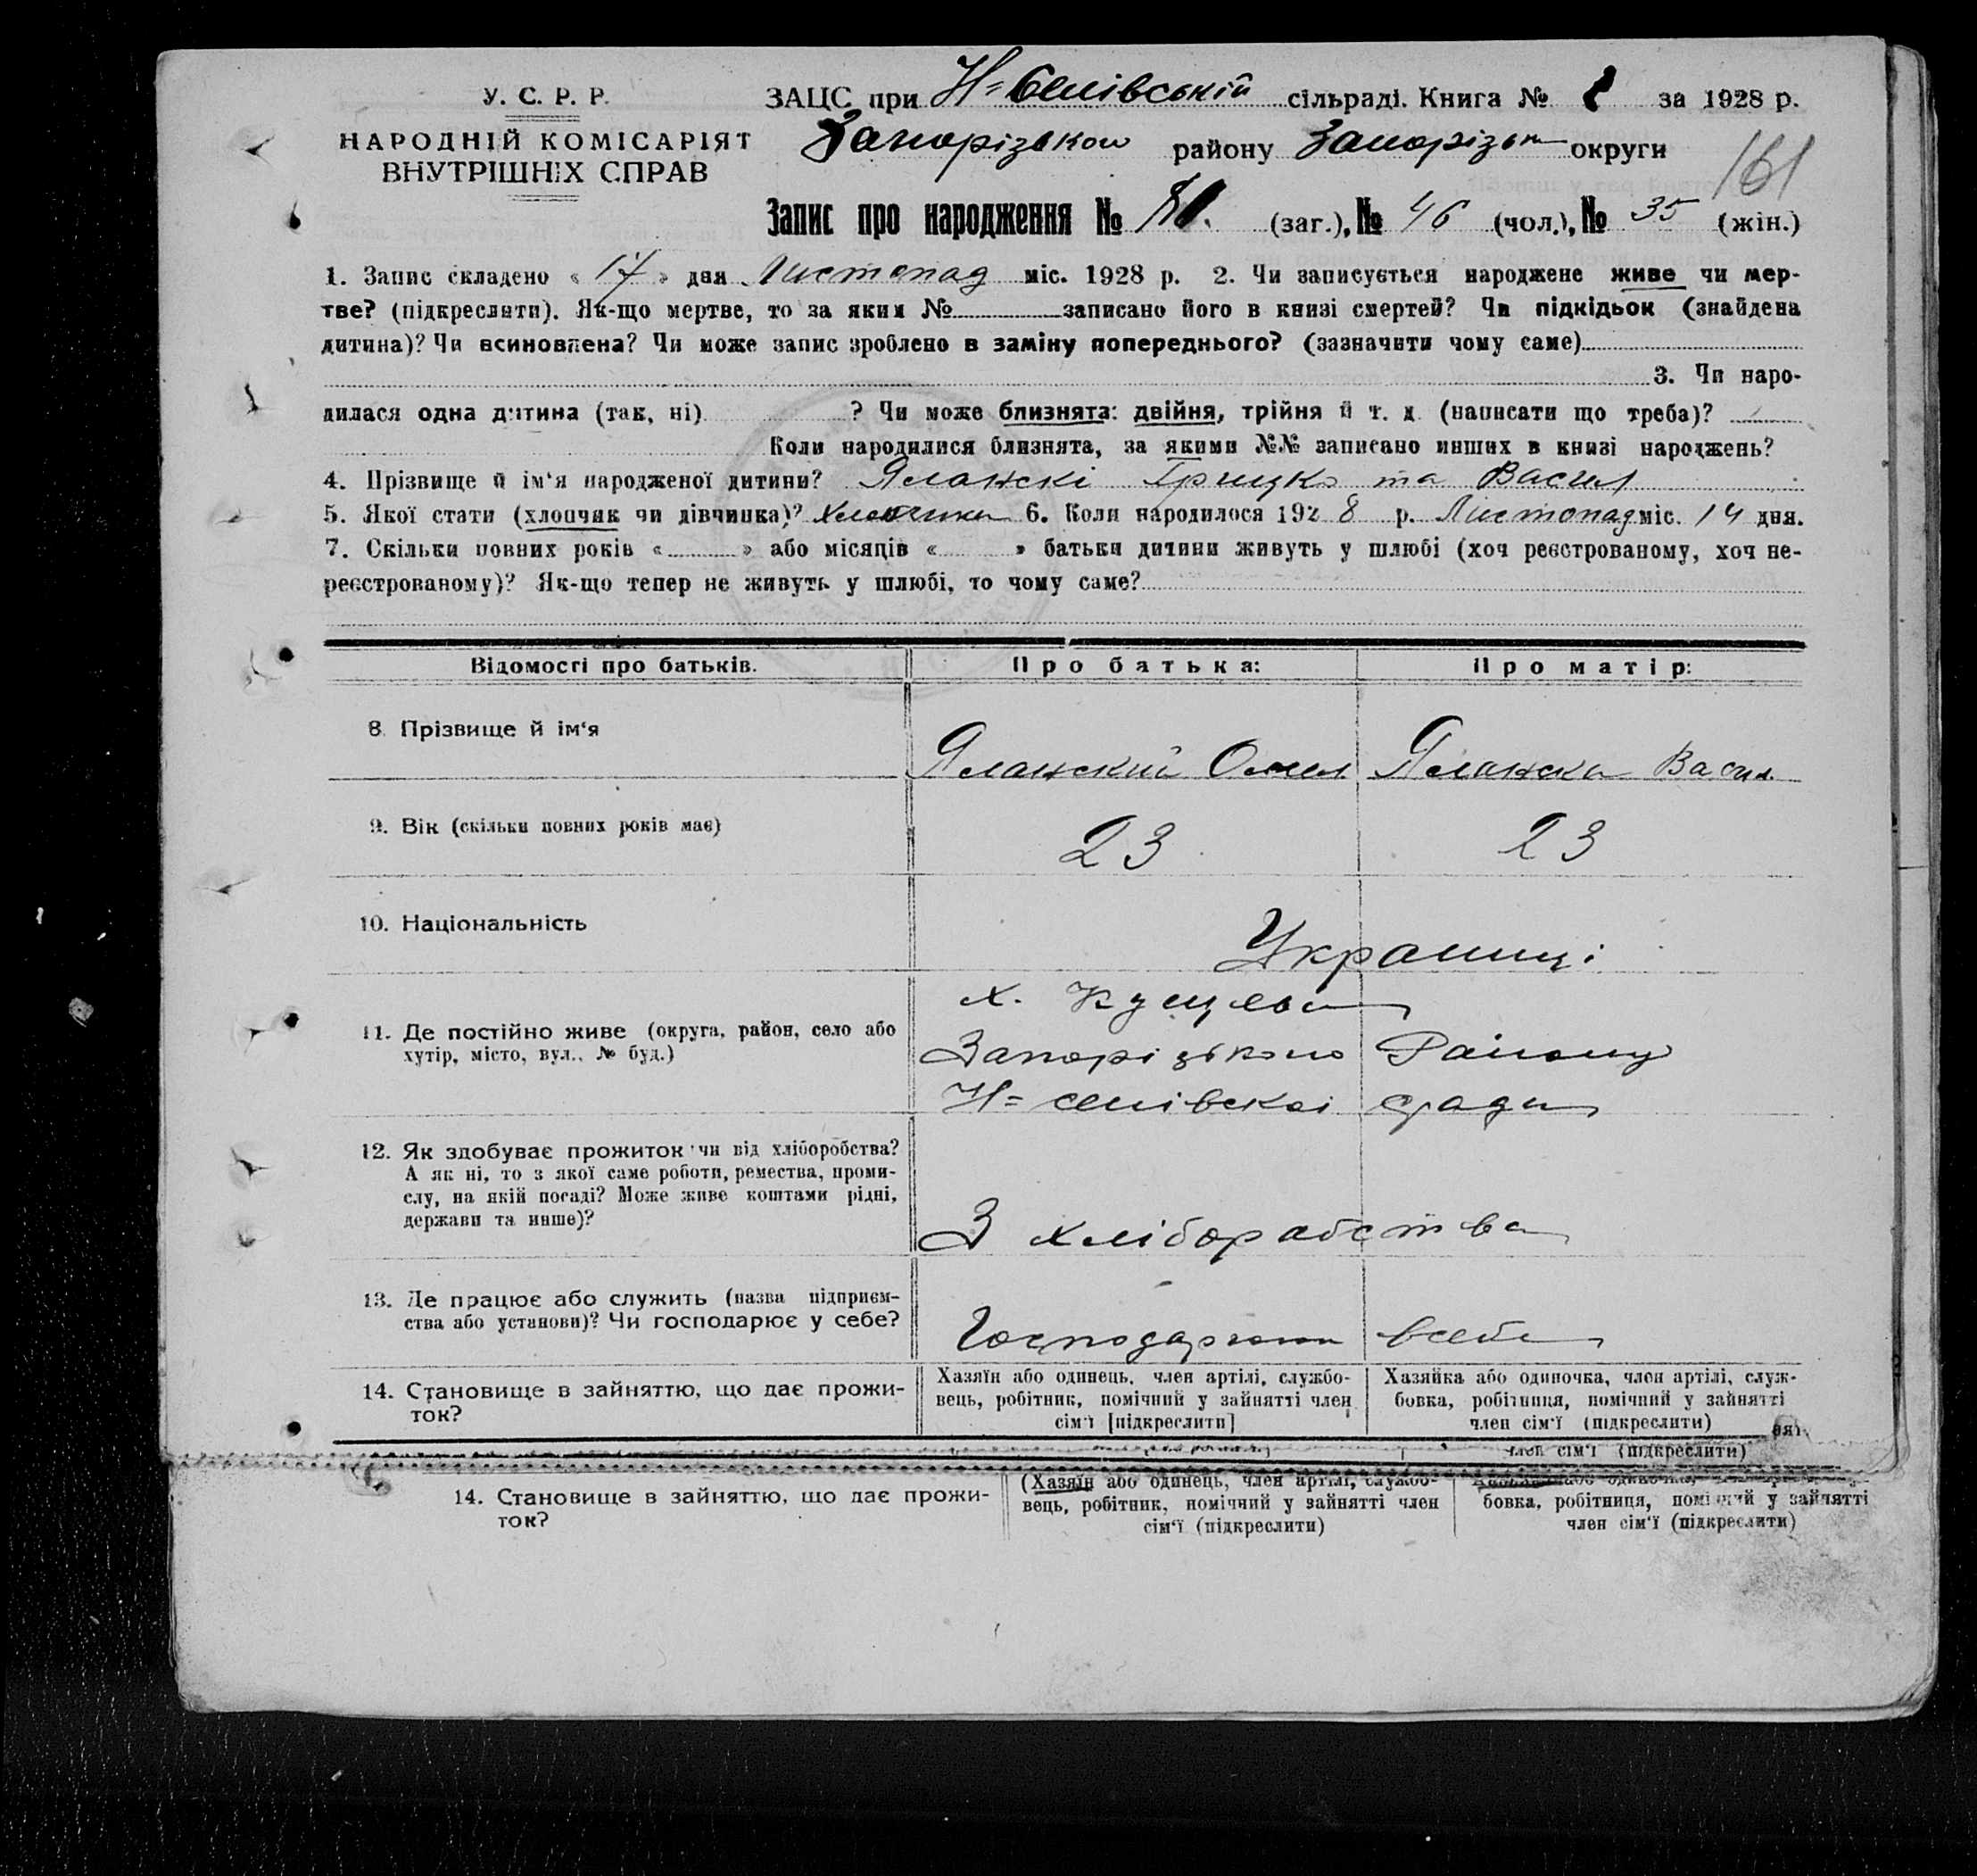 У. С. Р. Р.
НАРОДНІЙ КОМІСАРІЯТ
ВНУТРІШНІХ СПРАВ
ЗАЦС при Н=Селівській сільраді. Книга № за 1928 р.
Запорізького району Запорізьк округи
161
Запис про народження № (заг.), № 46 (чол.), № 35 (жін.)
1. Запис складено « 17 » дня Листопад міс. 1928 р. 2. Чи записується народжене живе чи мер-
тве? (підкреслити). Як-що мертве, то за яким № записано його в книзі смертей? Чи підкідьок (знайдена
дитина)? Чи всиновлена? Чи може запис зроблено в заміну попереднього? (зазначити чому саме)
3. Чи наро-
дилася одна дитина (так, ні) ? Чи може близнята: двійня, трійня й т. д. (написати що треба)?
Коли народилися близнята, за якими №№ записано инших в книзі народжень?
4. Прізвище й ім'я народженої дитини? Яланскі Грицко та Васил
5. Якої стати (хлопчик чи дівчинка)? Хлопчики 6. Коли народилося 1928 р. Листопад міс. 14 дня.
7. Скільки повних років « » або місяців « » батьки дитини живуть у шлюбі (хоч реєстрованому, хоч не-
реєстрованому)? Як-що тепер не живуть у шлюбі, то чому саме?
Відомості про батьків. Про батька: Про матір:
8. Прізвище й ім'я Яланский Омел Яланска Васил.
9. Вік (скільки повних років має) 23 23
10. Національність Украинці
11. Де постійно живе (округа, район, село або
хутір, місто, вул., № буд.)
х.
Запорізького Району
Н=селівскоі сради
12. Як здобуває прожиток чи від хліборобства?
А як ні, то з якої саме роботи, ремества, проми-
слу, на якій посаді? Може живе коштами рідні,
держави та инше)?
З хліборабства
13. Де працює або служить (назва підприєм-
ства або установи)? Чи господарює у себе?
Господарюют всебе
14. Становище в зайняттю, що дає прожи-
ток?
Хазяїн або одинець, член артілі, службо-
вець, робітник, помічний у зайнятті член
сім'ї [підкреслити]
Хазяйка або одиночка, член артілі, служ-
бовка, робітниця, помічний у зайнятті
член сім'ї (підкреслити)
член сім'ї (підкреслити)
14. Становище в зайняттю, що дає прожи-
ток?
(Хазяїн або одинець, член артілі, службо-
вець, робітник, помічний у зайнятті член
сім'ї (підкреслити)
бовка, робітниця, помічний у зайнятті
член сім'ї (підкреслити)